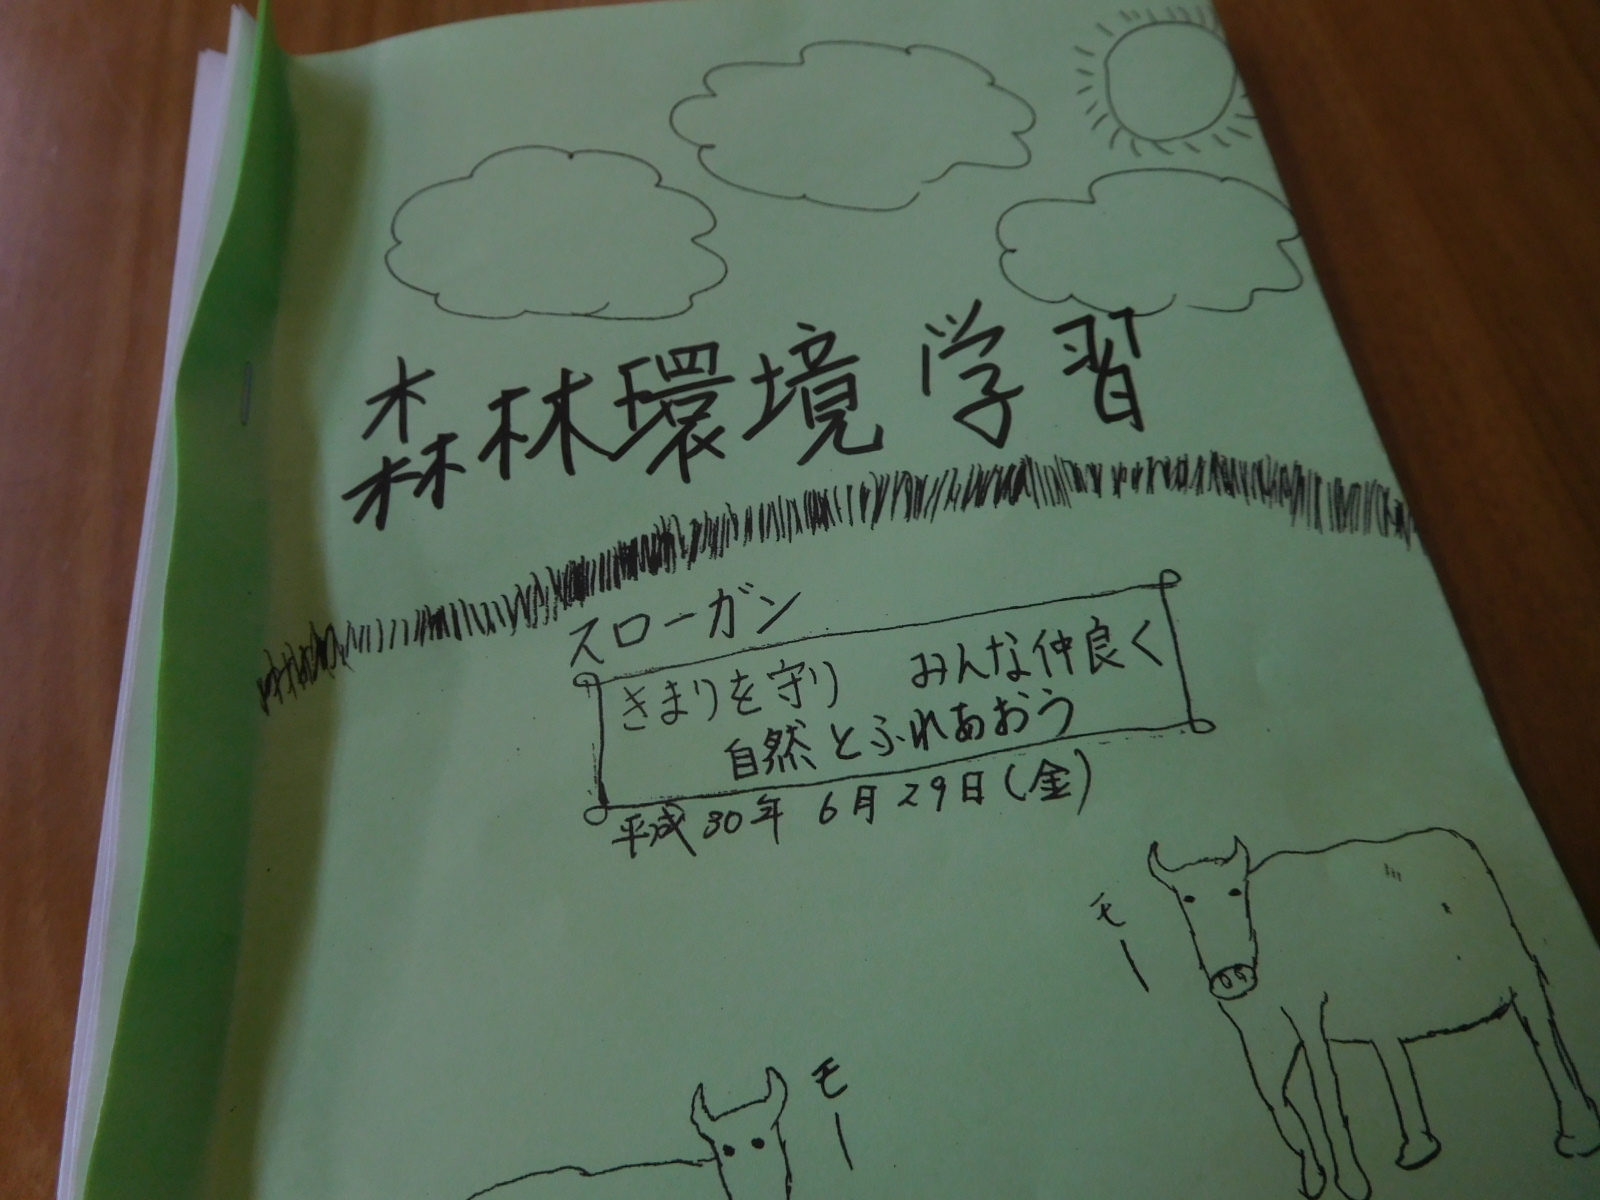 森林環境学習
スローガン
きまりを守り みんな仲良く
自然とふれあおう
平成30年 6月29日(金)
モー
モー